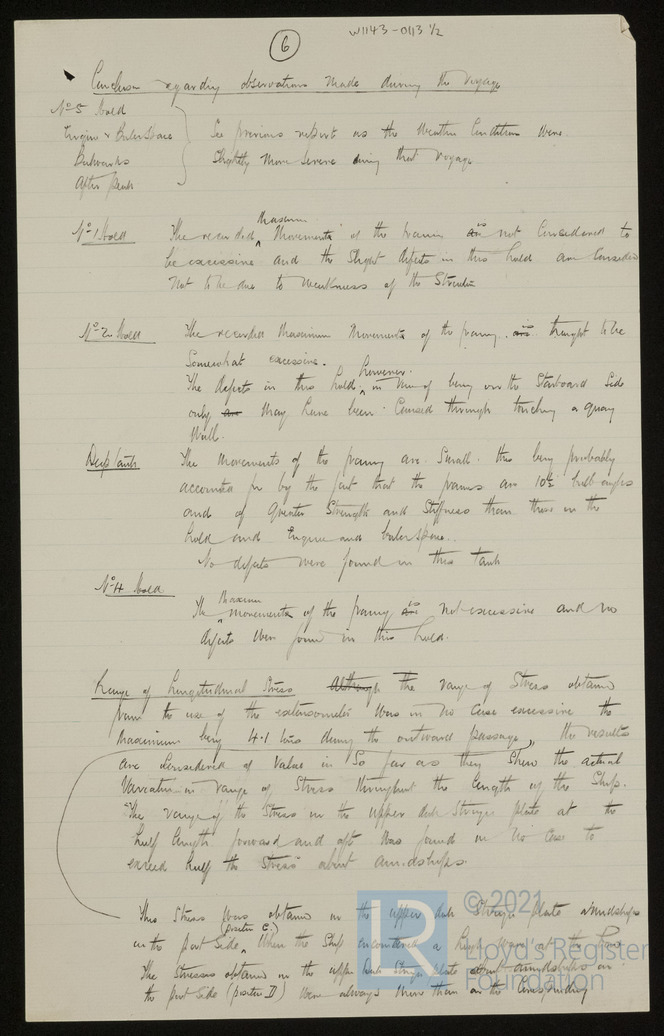 6
W1143-0113 1/2
Conclusion regarding observations made during the Voyage
No 5 Hold
Engine & Boiler Space
See previous report as the Weather Conditions were
Bulwarks
Slightly more severe during that voyage
After peak
No 1 Hold
The recorded maximum movements of the framing are is not considered to
be excessive and the slight defects in this hold are considered
not to be due to weakness of the Structure
No 2 Hold
The recorded maximum movements of the framing are is thought to be
Somewhat excessive.
The defects in this hold, however, in view of being on the Starboard Side
only are may have been caused through touching a quay
Wall.
Deep tank
The movements of the framing are small. this being probably
accounted for by the fact that the frames are 10½ bulb angles
and of greater Strength and Stiffness than those in the
hold and Engine and boiler space..
No defects were found in this tank
No 4 Hold
The maximum movements of the framing are is not excessive and no
defects were found in this hold.
Range of Longitudinal Stress Although The range of Stress obtained
from the use of the extensometer was in no case excessive the
maximum being 4.1 tons during the outward passage, the results
are considered of value in so far as they show the actual
Variation in range of Stress throughout the length of the Ship.
The range of the Stress in the upper deck Stringer plate at the
half length forward and aft was found in no case to
exceed half the Stress about amidships.
This stress was obtained in the upper deck Stringer plate amidships
in the port side (position C.) when the Ship encountered a high wave at the bow
The Stresses obtained in the upper deck Stringer plate about amidships on
the port side (position D) were always more than on the corresponding
LR
© 2021
Lloyd's Register
Foundation